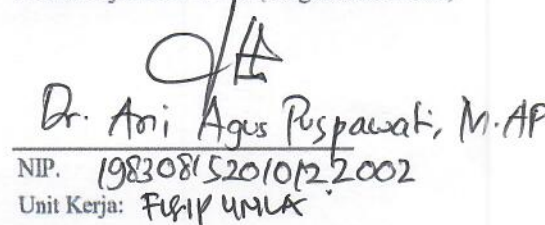 Dr. Ani Agus Puspawati, M.AP
NIP. 198308152010122002
Unit Kerja: FISIP UNILA